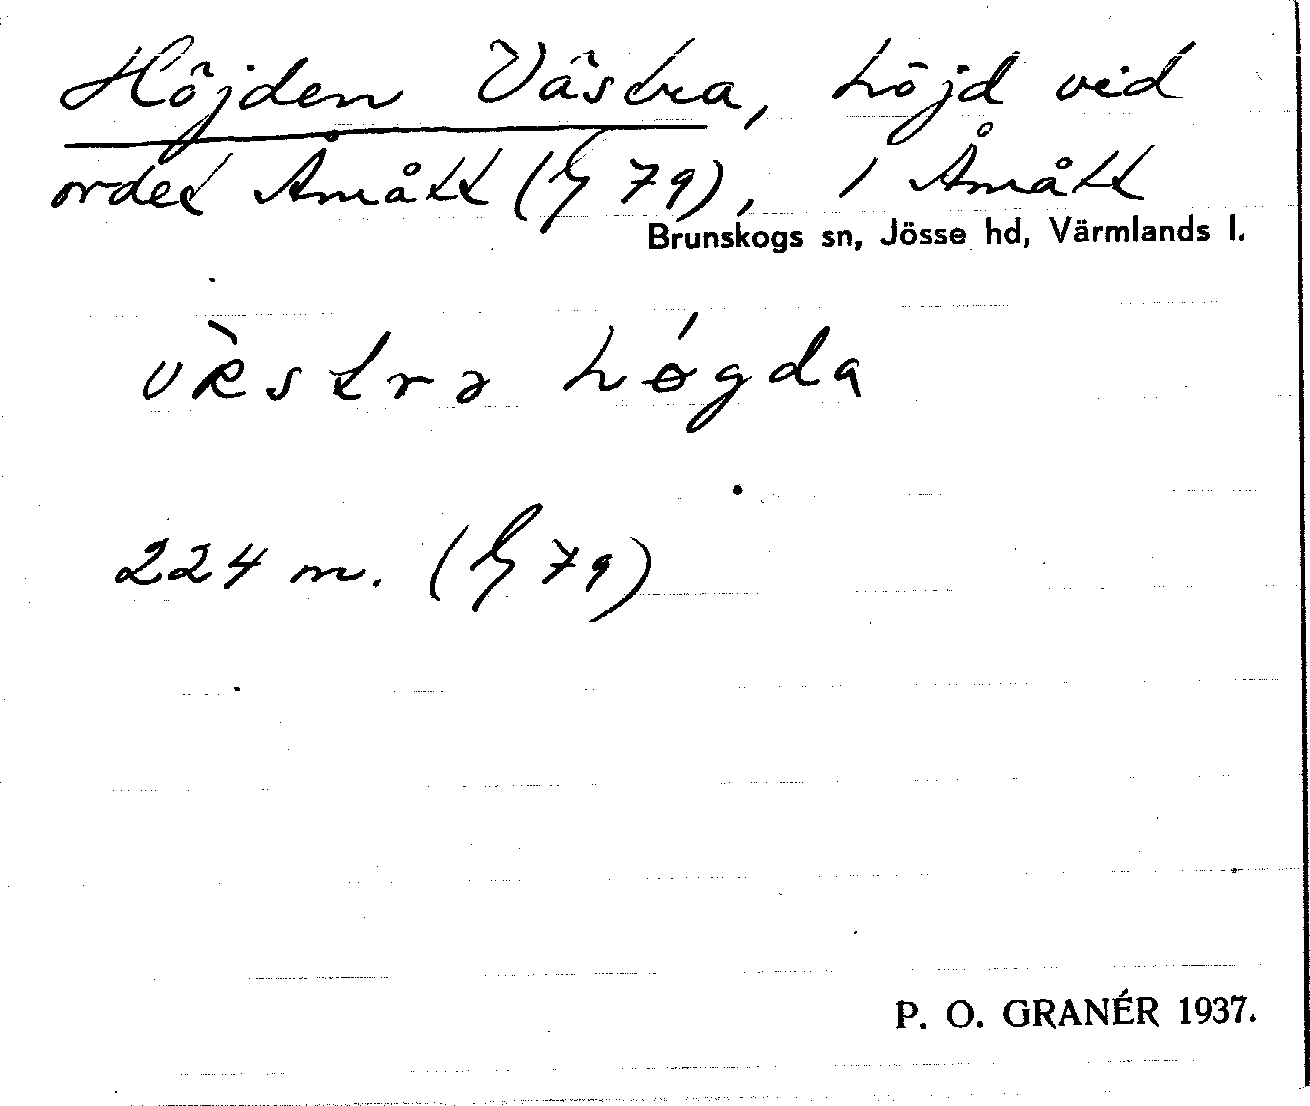 Höjden Västra, höjd vid
ordet Åmått (G 79), i Åmått
Brunskogs sn, Jösse hd, Värmlands l.
vɛ̀strə hǿgda
224 m. (G 79)
P. O. GRANÉR 1937.